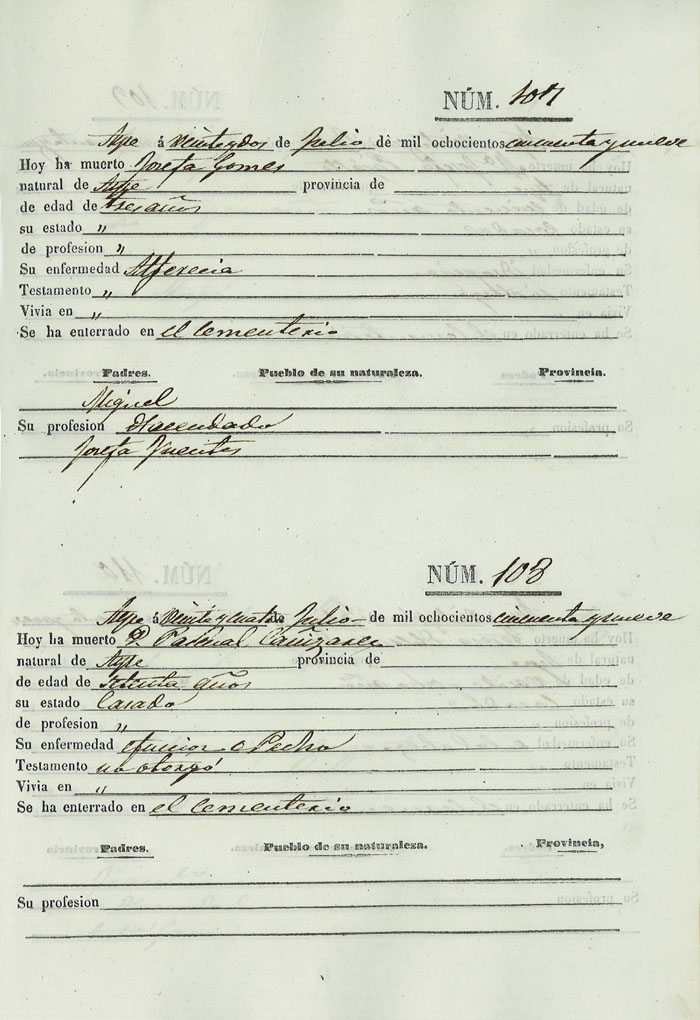 NÚM. 107
Aspe á Veinte y dos de Julio de mil ochocientos cincuenta y nueve
Hoy ha muerto Josefa Gomes
natural de Aspe provincia de
de edad de tres años
su estado "
de profesion "
Su enfermedad Alferecia
Testamento "
Vivia en "
Se ha enterrado en el Cementerio
Padres. Pueblo de su naturaleza. Provincia.
Miguel
Su profesion Hacendado
Josefa
NÚM. 108
Aspe á Veinte y cuatro Julio de mil ochocientos cincuenta y nueve
Hoy ha muerto D. Pascual Cañizares
natural de Aspe provincia de
de edad de setenta años
su estado Casado
de profesion "
Su enfermedad
Testamento no otorgó
Vivia en "
Se ha enterrado en el Cementerio
Padres. Pueblo de su naturaleza. Provincia,
Su profesion